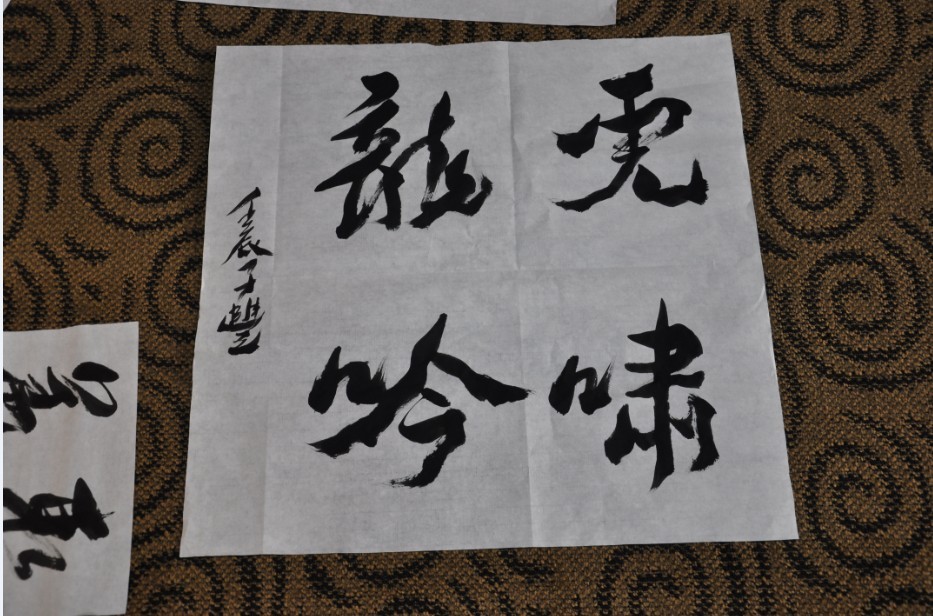 虎啸
龍吟
壬辰子豐